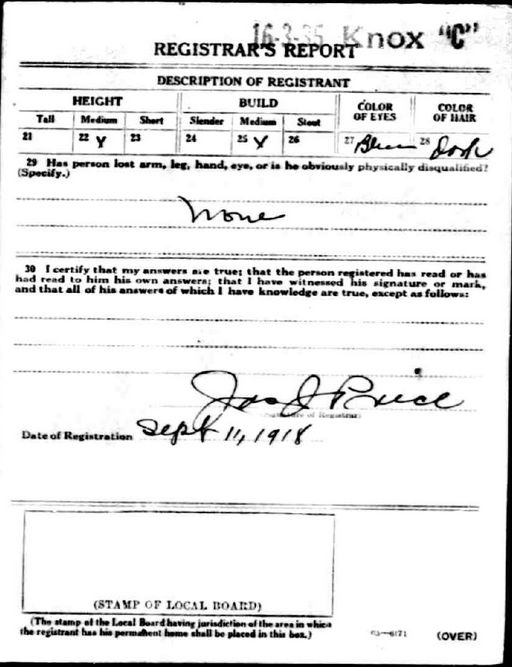 16-3-35 Knox "C"
REGISTRAR'S REPORT
DESCRIPTION OF REGISTRANT
HEIGHT BUILD COLOR OF EYES COLOR OF HAIR
Tall Medium Short Slender Medium Stout
21 22 X 23 24 25 X 26 27 Blue 28 Dark
29 Has person lost arm, leg, hand, eye, or is he obviously physically disqualified?
(Specify.)
None
30 I certify that my answers are true; that the person registered has read or has
had read to him his own answers; that I have witnessed his signature or mark,
and that all of his answers of which I have knowledge are true, except as follows:
Jas J Price
(Signature of Registrar)
Date of Registration Sept 11, 1918
(STAMP OF LOCAL BOARD)
(The stamp of the Local Board having jurisdiction of the area in which
the registrant has his permanent home shall be placed in this box.)
03—6171 (OVER)